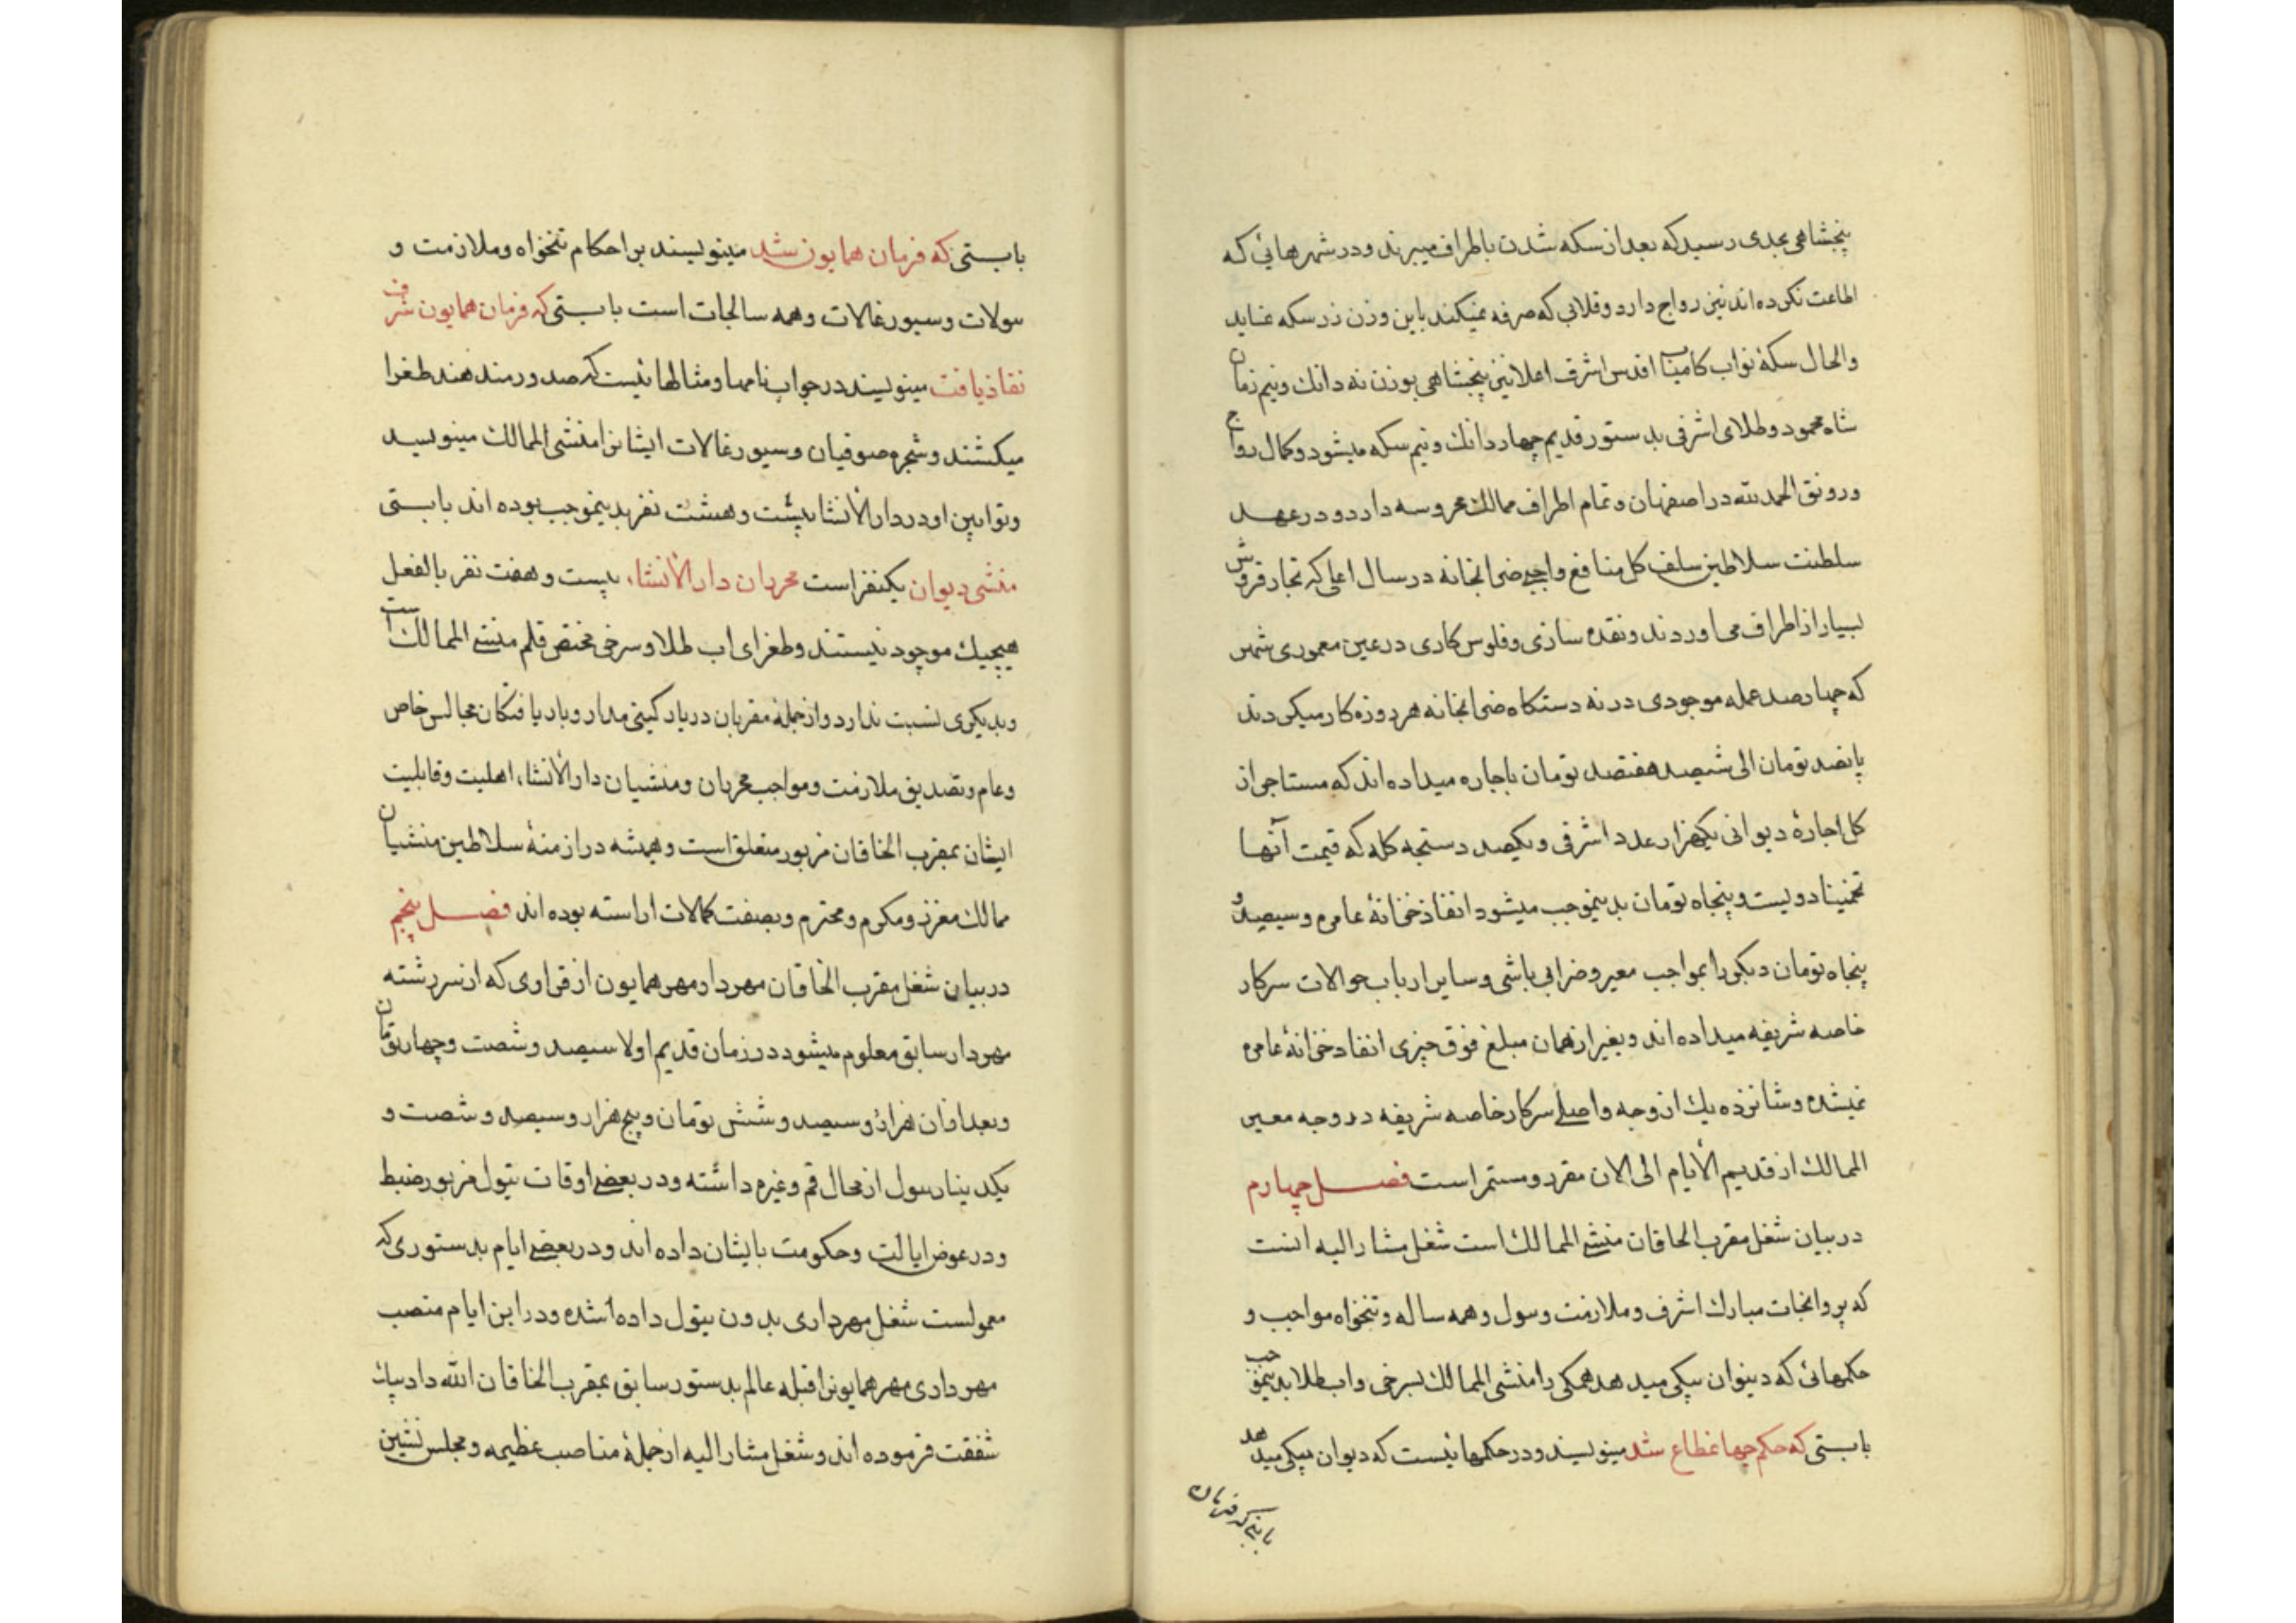 پنجشاهی بحدی رسید که بعد از سکه شدن باطراف میبرند و در شهرهائی که
اطاعت نکرده اند نیز رواج دارد و قلابی که صرفه نمیکند باین وزن زر سکه نماید
والحال سکۀ نواب کامیاب اقدس اشرف اعلا نیز پنجشاهی بوزن نه دانک و نیم زمان
شاه محمود و طلای اشرفی بدستور قدیم چهار دانک و نیم سکه میشود و کمال رواج
و رونق الحمدلله در اصفهان و تمام اطراف ممالک محروسه دارد و در عهد
سلطنت سلاطین سلف کل منافع واجبی ضرابخانه در سال اعلی که تجار قروش
بسیار از اطراف می اوردند و نقده سازی و فلوس کاری در عین معموری شهر
که چهارصد عمله موجودی در نه دستکاه ضرابخانه هر روزه کار میکردند
پانصد تومان الی ششصد هفتصد تومان باجاره میداده اند که مستاجر از
کل اجارۀ دیوانی یکهزار عدد اشرفی و یکصد دستجه کله که قیمت آنها
تخمینا دویست و پنجاه تومان بدینموجب میشود انفاذ خزانۀ عامره و سیصد و
پنجاه تومان دیکر را بمواجب معیر و ضرابی باشی و سایر ارباب حوالات سرکار
خاصه شریفه میداده اند و بغیر از همان مبلغ فوق چیزی انفاد خزانۀ عامره
نمیشده و شانزده یک از وجه واصلی سرکار خاصه شریفه در وجه معیر
الممالک از قدیم الأیام الی الان مقرر و مستمر است فصل چهارم
در بیان شغل مقرب الخاقان منشی الممالک است شغل مشار الیه انست
که پروانجات مبارک اشرف و ملازمت و سول و همه ساله و تنخواه مواجب و
حکمهائی که دیوان بیکی میدهد همکی را منشی الممالک بسرخی و اب طلا بدینموجب
بابستی که حکم جهانمطاع شد مینویسند و در حکمهائیست که دیوان بیکی میدهد
بابتی که فرمان
بابستی که فرمان همایون شد مینویسند بر احکام تنخواه و ملازمت و
سولات و سیورغالات و همه سالجات است بابستی که فرمان همایون شرف
نفاذ یافت مینویسند در جواب نامها و مثالهائیست که صدور مندهند طغرا
میکشند و شجره صوفیان و سیورغالات ایشانرا منشی الممالک مینویسد
و توابین او در دارالأنشا بیست و هشت نفر بدینموجب بوده اند بابستی
منشی دیوان یکنفر است محرران دارالأنشاء بیست و هفت نفر بالفعل
هیچیک موجود نیستند و طغرای اب طلا و سرخی مختص قلم منشی الممالک است
و بدیکری نسبت ندارد و از جملۀ مقربان دربار کیتی مدار و بار یافتکان مجالس خاص
و عام و تصدیق ملازمت و مواجب محرران و منشیان دارالأنشاء اهلیت و قابلیت
ایشان بمقرب الخاقان مزبور متعلق است و همیشه در ازمنۀ سلاطین منشیان
ممالک معزز و مکرم و محترم و بصفت کمالات اراسته بوده اند فصل پنجم
در بیان شغل مقرب الخاقان مهردار مهر همایون از قراری که از سررشته
مهردار سابق معلوم میشود در زمان قدیم اولا سیصد و شصت و چهار تومان
و بعد از ان هزار و سیصد و شش تومان و پنج هزار و سیصد و شصت و
یکدینار سول از محال قم و غیره داشته و در بعضی اوقات تیول مزبور ضبط
و در عوض ایالت و حکومت بایشان داده اند و در بعضی ایام بدستوری که
معمولست شغل مهرداری بدون تیول داده شده و در این ایام منصب
مهرداری مهر همایونرا قبله عالم بدستور سابق بمقرب الخاقان الله داد بیک
شفقت فرموده اند و شغل مشار الیه از جملۀ مناصب عظیمه و مجلس نشین